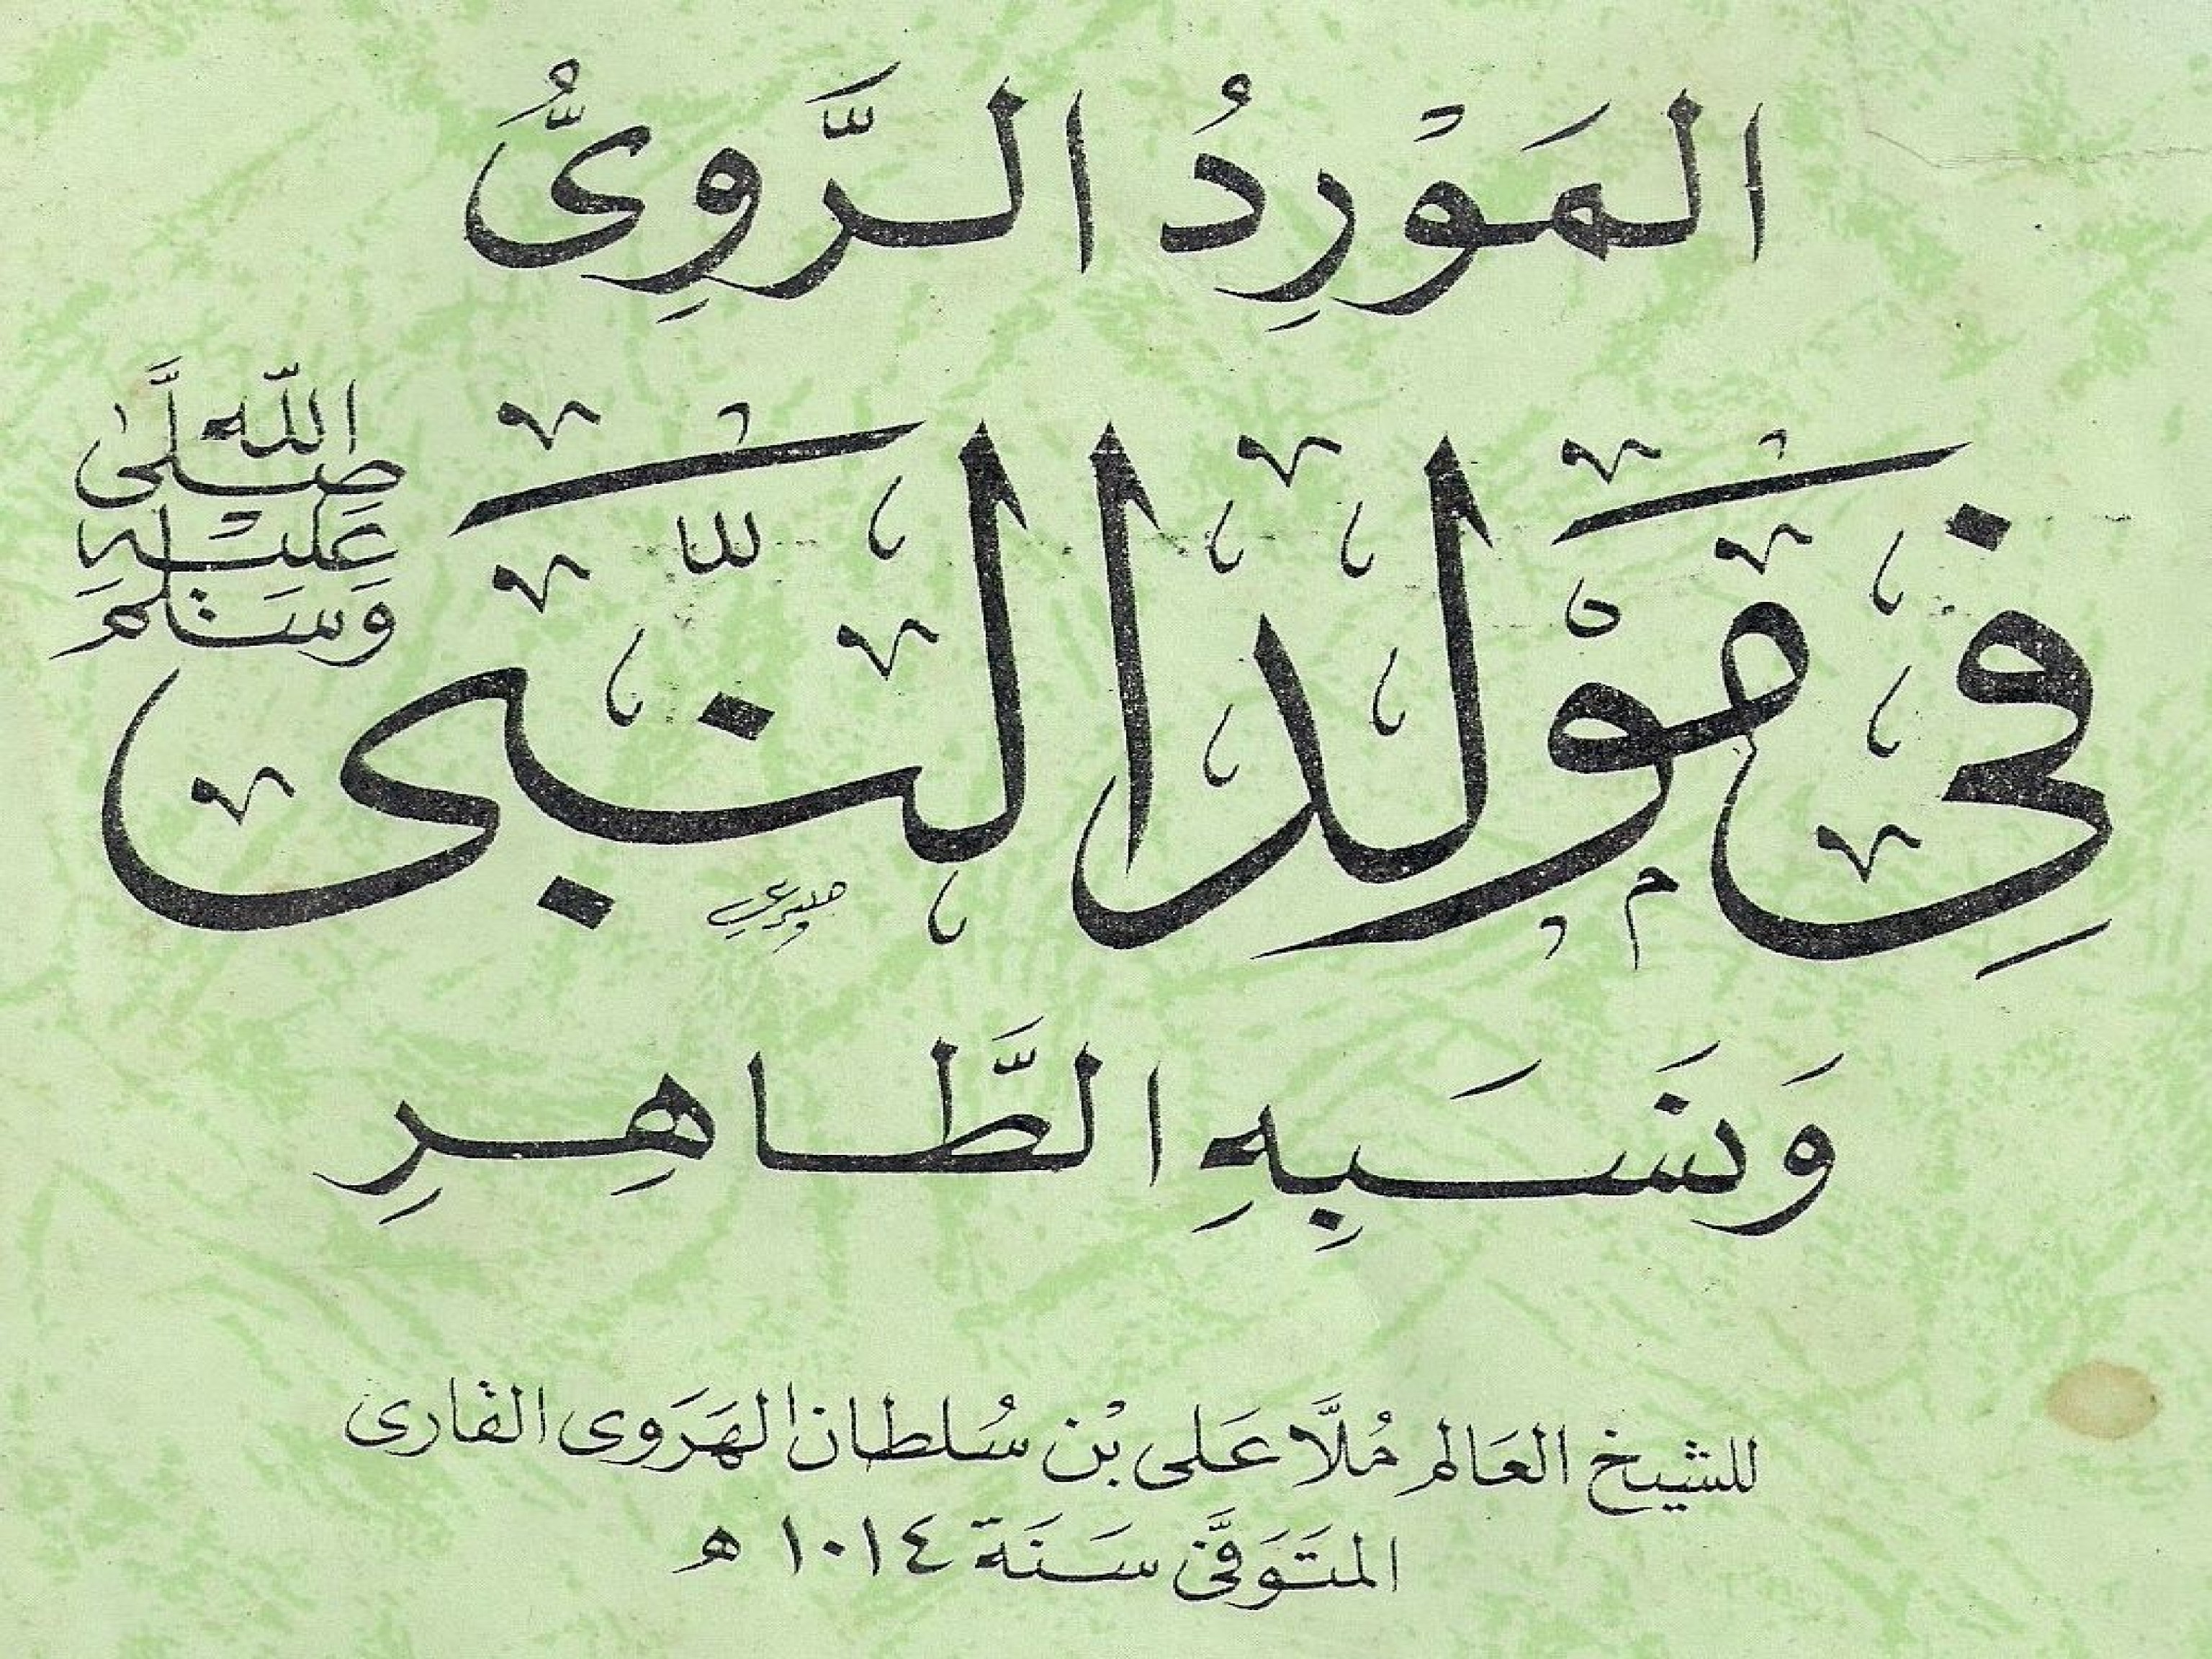 المَوْرِدُ الرَّوِيُّ
فِي مَوْلِدِ النَّبِيّ صَلَّى اللّٰه عَلَيْهِ وَسَلَّمَ
وَنَسَبِهِ الطَّاهِرِ
للشيخ العَالم مُلَّا عَلى بْن سُلطان الهَرَوى القارى
المتَوَفَّى سَنَة ١٠١٤ ه